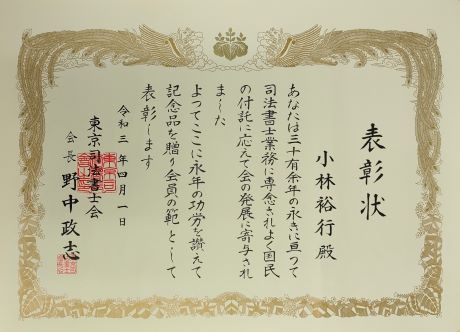 表彰状
小林裕行殿
あなたは三十有余年の永きに亘って
司法書士業務に専念されよく国民
の付託に応えて会の発展に寄与され
ました
よってここに永年の功労を讃えて
記念品を贈り会員の範として
表彰します
令和三年四月一日
東京司法書士会
会長 野中政志